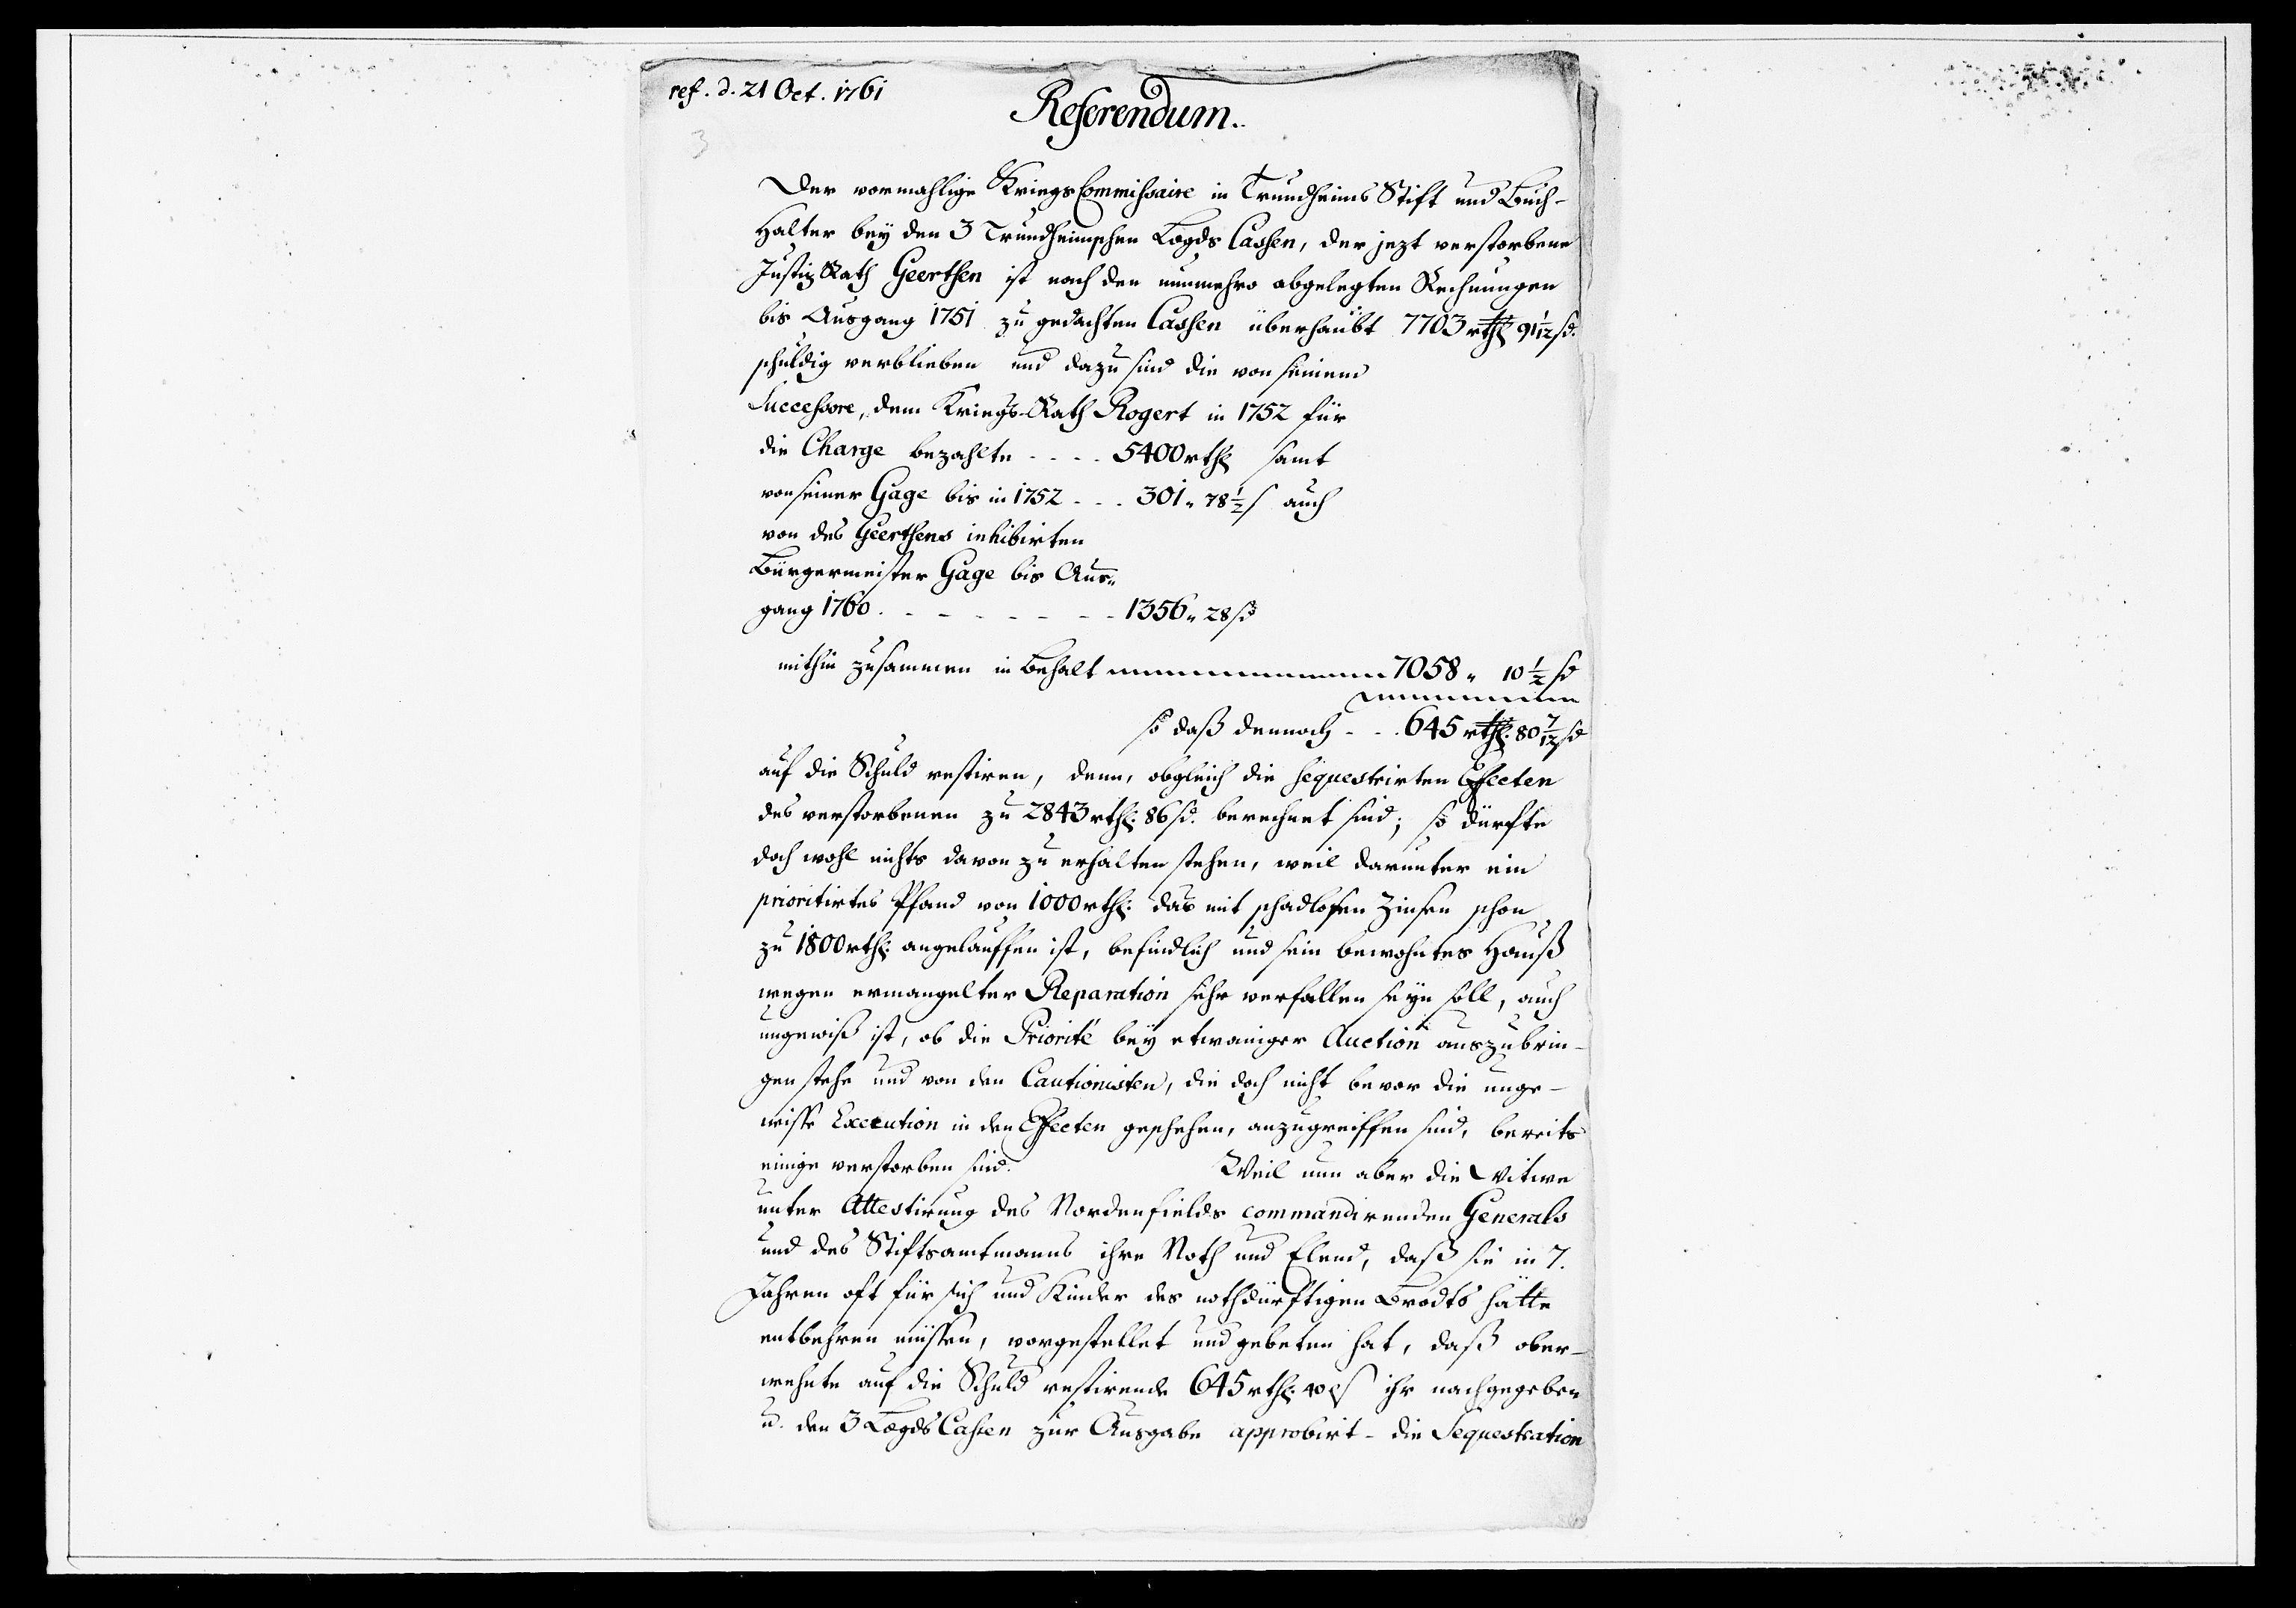 ref. d. 21 Oct. 1761
3
Referendum.
Der vormahlige KriegsCommissaire in Trundheims Stift und Buch-
Halter bey den 3 Trundheimschen Lægds Cassen, der jezt verstorbene
Justiz Rath Geerthsen ist nach den nunmehro abgelegten Rechnungen
bis Ausgang 1751 zu gedachten Cassen überhaubt 7703 rthl 91 1/12 ſß.
schuldig verblieben und dazu sind die von seinem
Successore, dem Kriegs-Rath Rogert in 1752 für
die Charge bezahlte .... 5400 rthl samt
von seiner Gage bis in 1752 ... 301 " 78 1/2 ß auch
von des Geerthsens inhibirten
Bürgermeister Gage bis Aus"
gang 1760 . - - - - - - 1356 " 28 ß
mithin zusammen in Behalt 7058 " 10 1/2 ß
so daß dennoch - - . 645 rthl. 80 7/12 ß
auf die Schuld restiren, denn, obgleich die sequestrirten Effecten
des verstorbenen zu 2843 rthl. 86 ß. berechnet sind; so dürfte
doch wohl nichts davon zu erhalten stehen, weil darunter ein
prioritirtes Pfand von 1000 rthl. das mit schadlosen Zinsen schon
zu 1800 rthl. angelauffen ist, befindlich und sein bewohntes Hauß
wegen ermangelter Reparation sehr verfallen seyn soll, auch
ungewiß ist, ob die Priorité bey etwaniger Auction auszubrin-
gen stehe und von den Cautionisten, die doch nicht bevor die unge-
wisse Execution in den Effecten geschehen, anzugreiffen sind, bereits
einige verstorben sind. Weil nun aber die Witwe
unter Attestirung des Nordenfields commandirenden Generals
und des Stiftsamtmanns ihre Noth und Elend, daß sie in 7.
Jahren oft für sich und Kinder des nothdürftigen Brodts hätte
entbehren müssen, vorgestellet und gebeten hat, daß ober-
wehnte auf die Schuld restirende 645 rthl. ihr nachgegeben
u. den 3 Lægds Cassen zur Ausgabe approbirt - die Sequestration